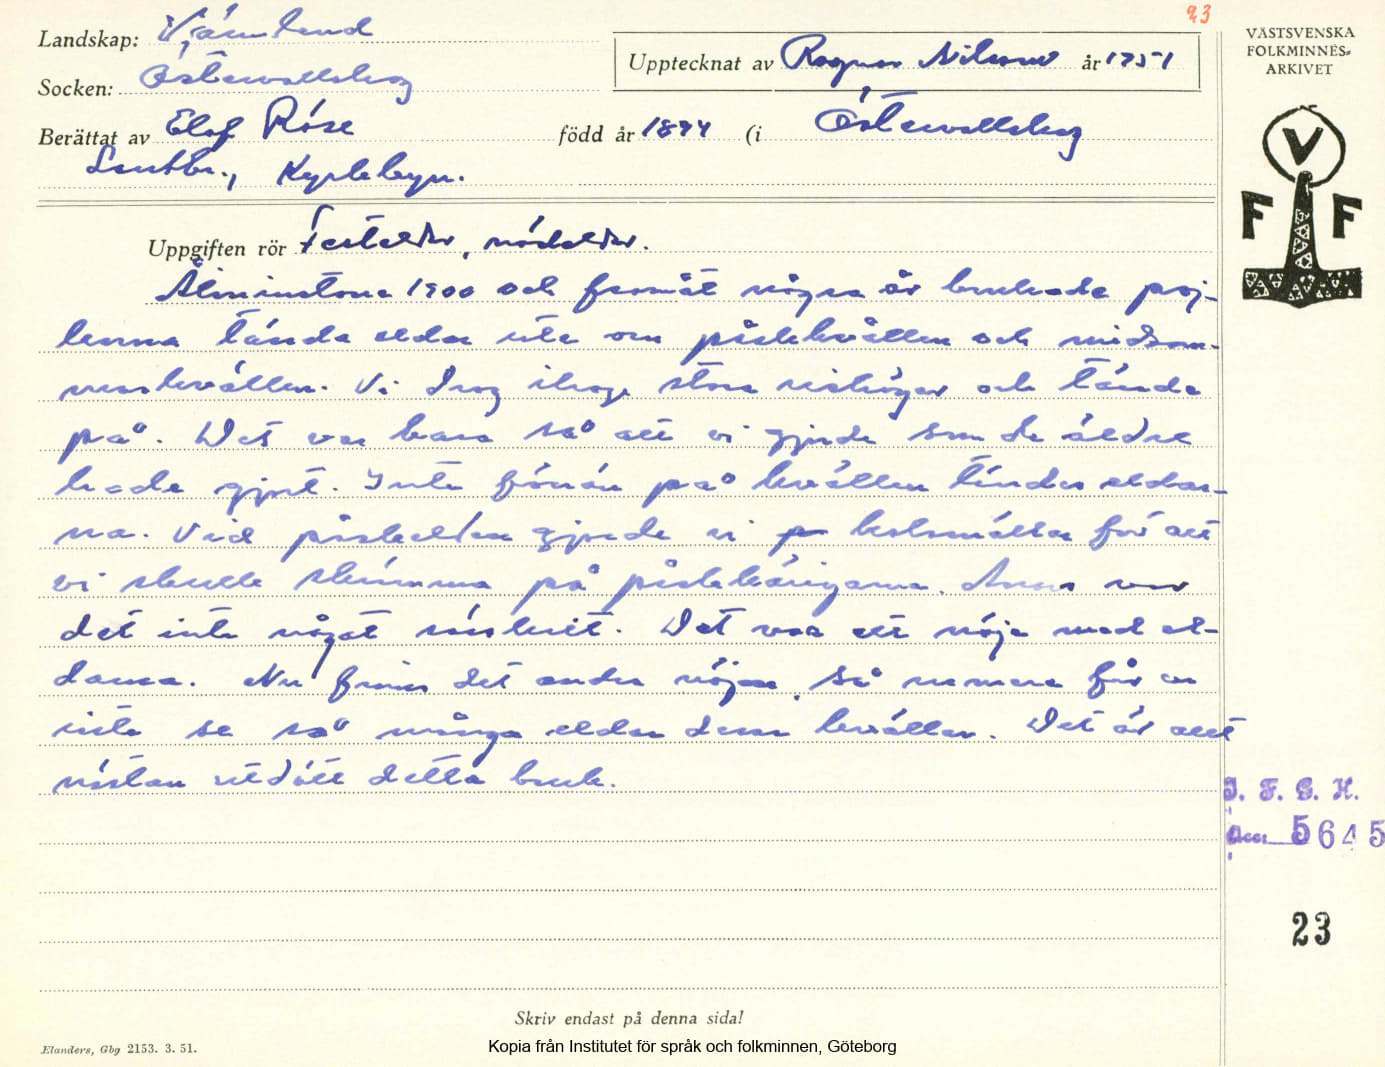 23
Landskap: Värmland
VÄSTSVENSKA
FOLKMINNES-
ARKIVET
Upptecknat av Ragnar Nilsson år 1951
Socken: Östervallskog
Berättat av Elof Röse född år 1894 (i Östervallskog
Lantbr.,
V
F F
Uppgiften rör Festeldar, nödeldar.
Åtminstone 1900 och framåt några år brukade poj-
karna tända eldar ute om påskkvällen och midsom-
markvällen. Vi drog ihop stora rishögar och tände
på. Det var bara så att vi gjorde som de äldre
hade gjort. Inte förrän på kvällen tändes eldar-
na. Vid påskelden gjorde vi kolsmällar för att
vi skulle skrämma på påskkäringarna. Annars var
det inte något särskilt. Det var ett nöje med el-
darna. Nu finns det andra nöjen, så numera får en
inte se så många eldar dessa kvällar. Det är allt
nästan utdött detta bruk.
I. F. G. H.
Acc. 5645
23
Skriv endast på denna sida!
Elanders, Gbg 2153. 3. 51.
Kopia från Institutet för språk och folkminnen, Göteborg